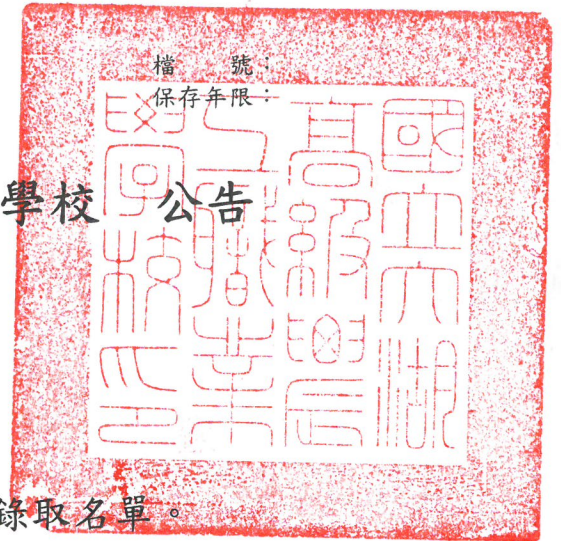 檔　　號：
保存年限：
學校　公告
國立大湖
高級農
工職業
學校印
錄取名單。